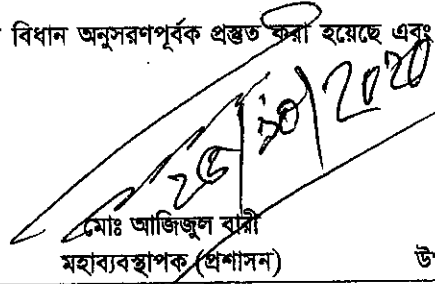 বিধান অনুসরণপূর্বক প্রস্তুত করা হয়েছে এবং
মোঃ আজিজুল বারী
মহাব্যবস্থাপক (প্রশাসন)